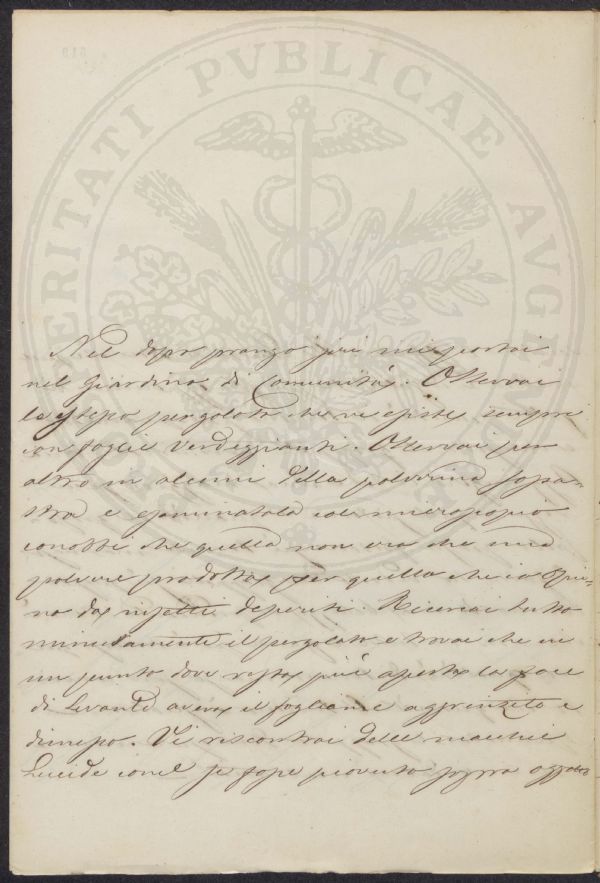 PROSPERITATI PVBLICAE AVGENDAE
Nel dopo pranzo jeri mi portai
nel Giardino di Comunità. Osservai
lo stesso pergolato che vi esiste sempre
con foglie verdeggianti. Osservai per
altro in alcuni della polverina sopra-
stra e esaminatola col microscopio
conobbi che quella non era che una
polvere prodotta per quella che io opi-
no da insetti deperiti. Ricercai tutto
minutamente il pergolato e trovai che in
un punto dove resta più aperta la face
di Levante aveva il fogliame aggrinzito e
dimesso. Vi riscontrai delle macchie
Lucide come se fosse piovuto sopra